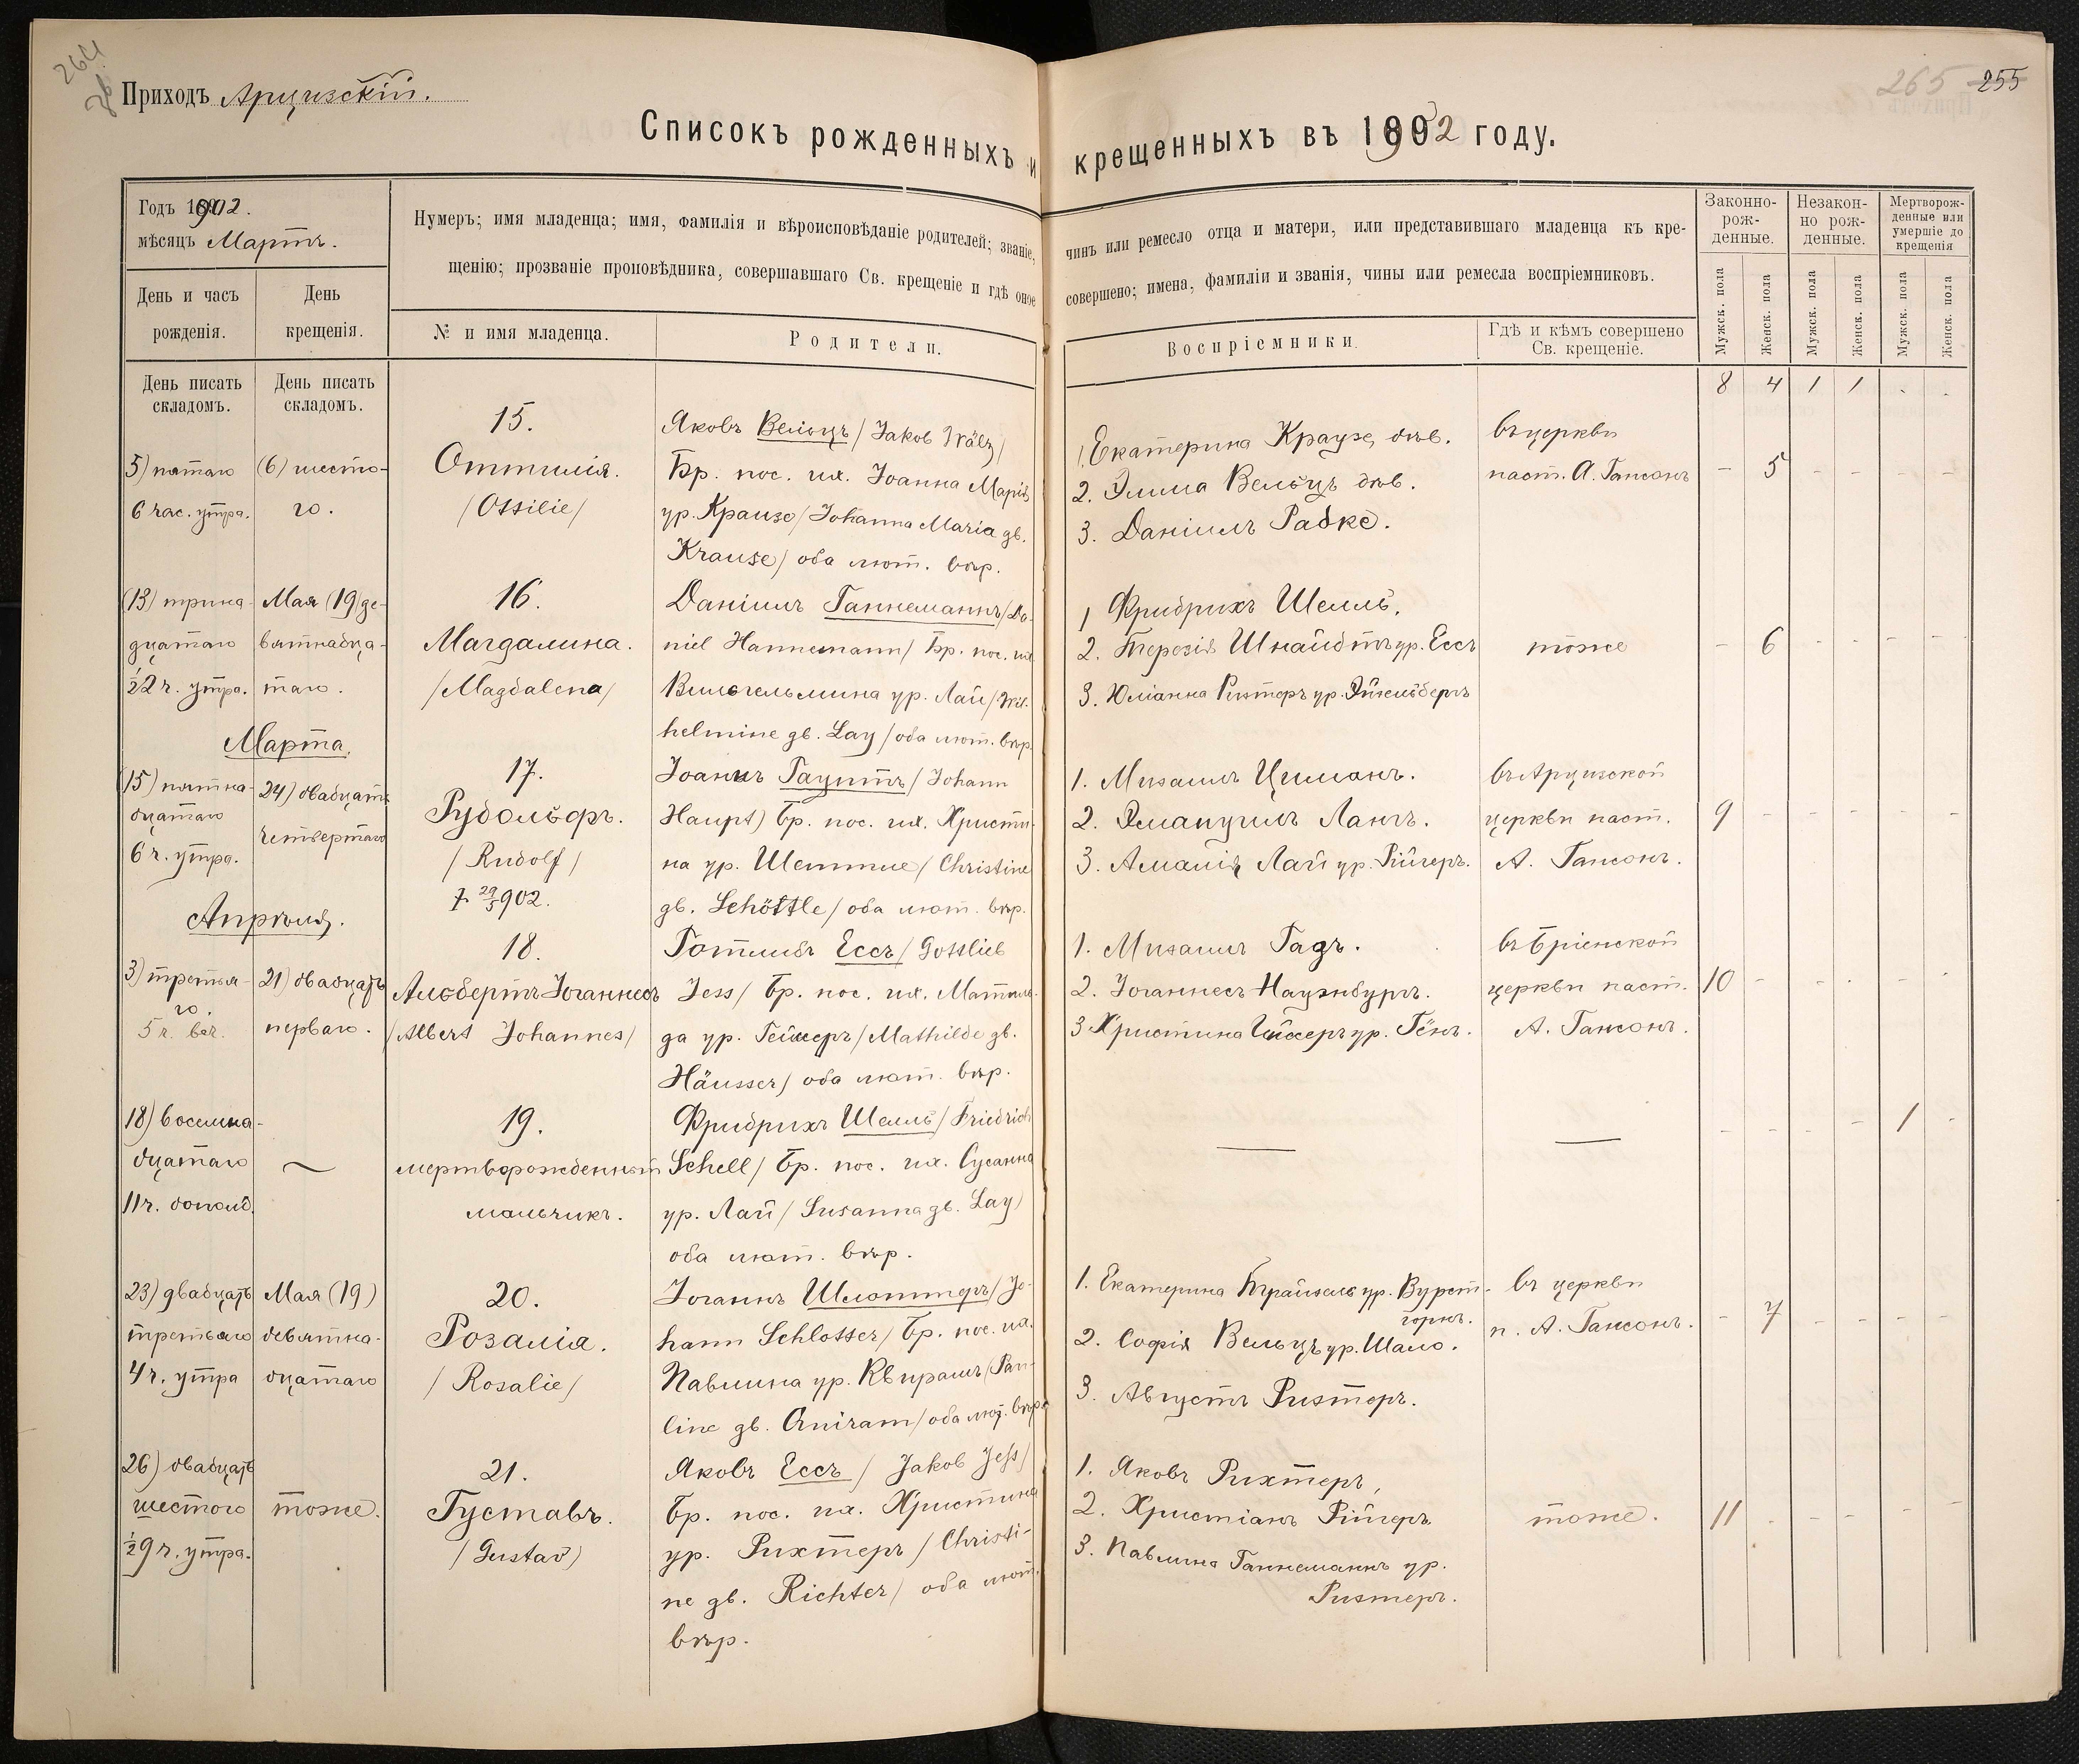 264
Приходъ Арцизскій.
265 255
Списокъ рожденныхъ и крещенныхъ въ 1902 году.
Годъ 1902.
мѣсяцъ Мартъ.
День и часъ рожденія.
День крещенія.
Нумеръ; имя младенца; имя, фамилія и вѣроисповѣданіе родителей; званіе, чинъ или ремесло отца и матери, или представившаго младенца къ кре-
щенію; прозваніе проповѣдника, совершавшаго Св. крещеніе и гдѣ оное совершено; имена, фамиліи и званія, чины или ремесла воспріемниковъ.
№ и имя младенца.
Родители.
Воспріемники.
Гдѣ и кѣмъ совершено
Св. крещеніе.
Законно-
рож-
денные.
Незакон-
но рож-
денные.
Мертворож-
денные или
умершіе до
крещенія
Мужск. пола
Женск. пола
Мужск. пола
Женск. пола
Мужск. пола
Женск. пола
День писать
складомъ.
День писать
складомъ.
8 4 1 1 . .
5) пятаго
6 час. утра.
(6) шесто-
го.
15.
Оттилія.
/Ottilie/
Яковъ Вельцъ/Jakob Wälz/
Бр. пос. их. Іоанна Марія
ур. Краузе/Johanna Maria gb.
Krause/ оба лют. вѣр.
1. Екатерина Краузе, дѣв.
2. Эмма Вельцъ дѣв.
3. Даніилъ Радке.
въ церкви
паст. А. Гансонъ
- 5 - - - -
(13) трина-
дцатаго
½2 ч. утра.
Мая (19) де-
вятнадца-
таго.
16.
Магдалина.
/Magdalena/
Даніилъ Ганнеманнъ/Da-
niel Hannemann/ Бр. пос. их.
Вильгельмина ур. Лай/Wil-
helmine gb. Lay/оба лют. вѣр.
1 Фридрихъ Шелль.
2. Терезія Шнайдтъ ур. Ессъ
3. Юліанна Рихтеръ ур. Эйгельбергъ
тоже
- 6 - - - -
Марта.
(15) пятна-
дцатаго
6 ч. утра.
24) двадцать
четвертаго
17.
Рудольфъ.
/Rudolf/
† 29/5 902.
Іоаннъ Гауптъ/Johann
Haupt) Бр. пос. их. Христи-
на ур. Шеттле/Christine
gb. Schöttle/оба лют. вѣр.
1. Михаилъ Циманъ.
2. Эмануилъ Лангъ.
3. Амалія Лай ур. Рійгеръ.
въ Арцизской
церкви паст.
А. Гансонъ.
9 - - - - -
Апрѣля.
3) третья-
го.
5 ч. веч.
21) двадцать
перваго.
18.
Альбертъ Іоганнесъ
/Albert Johannes/
Готлибъ Ессъ/Gottlieb
Jess/ Бр. пос. их. Матиль-
да ур. Гейсеръ/Mathilde gb.
Häusser/ оба лют. вѣр.
1. Михаилъ Гадъ.
2. Іоганнесъ Науэнбургъ.
3 Христина Гейсеръ ур. Гёнъ.
въ Бріенской
церкви паст.
А. Гансонъ.
10 - - . - .
18) восемна-
дцатаго
11 ч. дополд.
19.
мертворожденный
мальчикъ.
Фридрихъ Шелль/Friedrich
Schell/ Бр. пос. их. Сусанна
ур. Лай/Susanna gb. Lay)
оба лют. вѣр.
- - - - 1 -
23) двадцать
третьяго
4 ч. утра
Мая (19)
девятна-
дцатаго
20.
Розалія.
/Rosalie/
Іоганнъ Шлоттеръ/Jo-
hann Schlotter/ Бр. пос. их.
Павлина ур. Квирамъ/Pau-
line gb. Quiram/оба лют. вѣр.
1. Екатерина Трайхель ур. Вурст-
горнъ.
2. Софія Вельцъ ур. Шало.
3. Августъ Рихтеръ.
въ церкви
п. А. Гансонъ.
- 7 - - - -
26) двадцать
шестого
½9 ч. утра.
тоже.
21.
Густавъ.
/Gustav)
Яковъ Ессъ/ Jakob Jess/
Бр. пос. их. Христина
ур. Рихтеръ/Christi-
ne gb. Richter/ оба лют.
вѣр.
1. Яковъ Рихтеръ,
2. Христіанъ Рійгеръ
3. Павлина Ганнеманнъ ур.
Рихтеръ.
тоже.
11 - - - - -